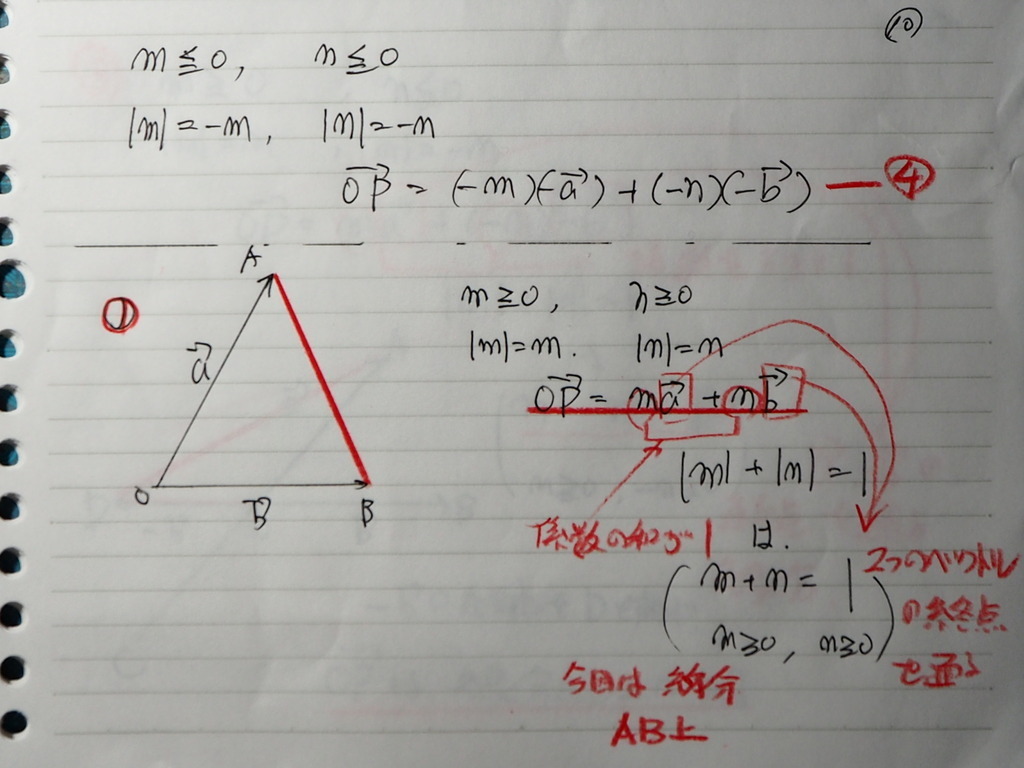 ⑩
m ≦ 0, n ≦ 0
|m| = -m, |n| = -n
OP→ = (-m)(-a→) + (-n)(-b→) — ④
①
A
a→
O
b→
B
m ≧ 0, n ≧ 0
|m| = m. |n| = n
OP→ = ma→ + nb→
|m| + |n| = 1
係数の和が1 は.
m + n = 1
m ≧ 0, n ≧ 0
2つのベクトル
の終点
を通る
今回は 線分
AB上